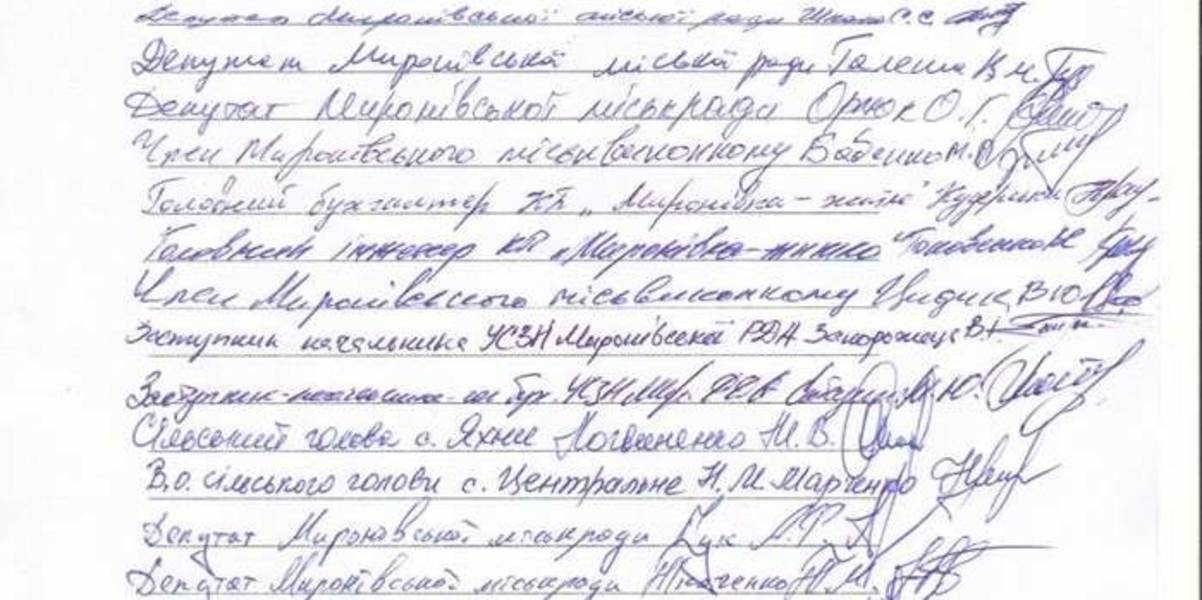 Депутат Миронівської міської ради С.С.
Депутат Миронівської міської ради Галеша В.М.
Депутат Миронівської міськради О.Г.
Член Миронівського міськвиконкому Бабенко М.
Головний бухгалтер КП „Миронівка-житло"
Головний інженер КП „Миронівка-житло"
Член Миронівського міськвиконкому Цидик В.Ю.
Заступник начальника УСЗН Миронівської РДА Запорожець В.І.
Заступник начальника УСЗН Ю.
Сільський голова с. Яхни Логвиненко М.В.
В.о. сільського голови с. Центральне Н.М. Марченко
Депутат Миронівської міськради
Депутат Миронівської міськради Ткаченко Н.М.